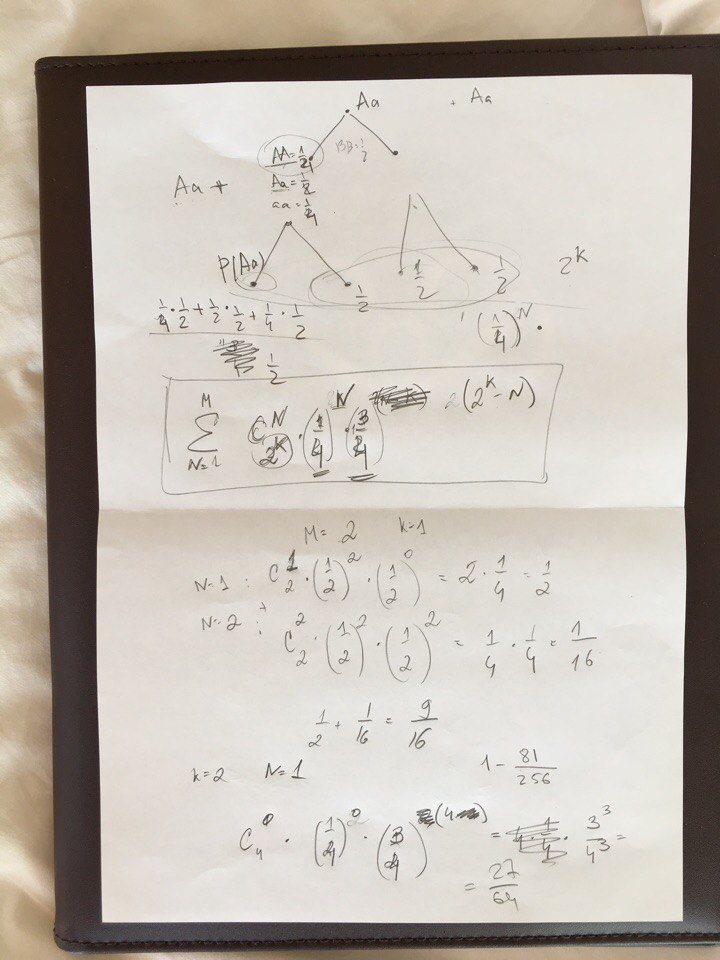 Aa + Aa
AA = 1/4 BB = 1/2
Aa + Aa = 1/2
aa = 1/4
P(Aa) 1/2 1/2 1/2 2^k
1/4 · 1/2 + 1/2 · 1/2 + 1/4 · 1/2 (1/4)^N ·
1/2
M
∑ C_{2^k}^N · (1/4)^N · (3/4) (2^k - N)
N=1
M = 2 k=1
N=1 : C_2^1 · (1/2)^2 · (1/2)^0 = 2 · 1/4 = 1/2
+
N=2 : C_2^2 · (1/2)^2 · (1/2)^2 = 1/4 · 1/4 = 1/16
1/2 + 1/16 = 9/16
k=2 N=1 1 - 81/256
C_4^0 · (1/4)^0 · (3/4) = 3^3/4^3 =
= 27/64